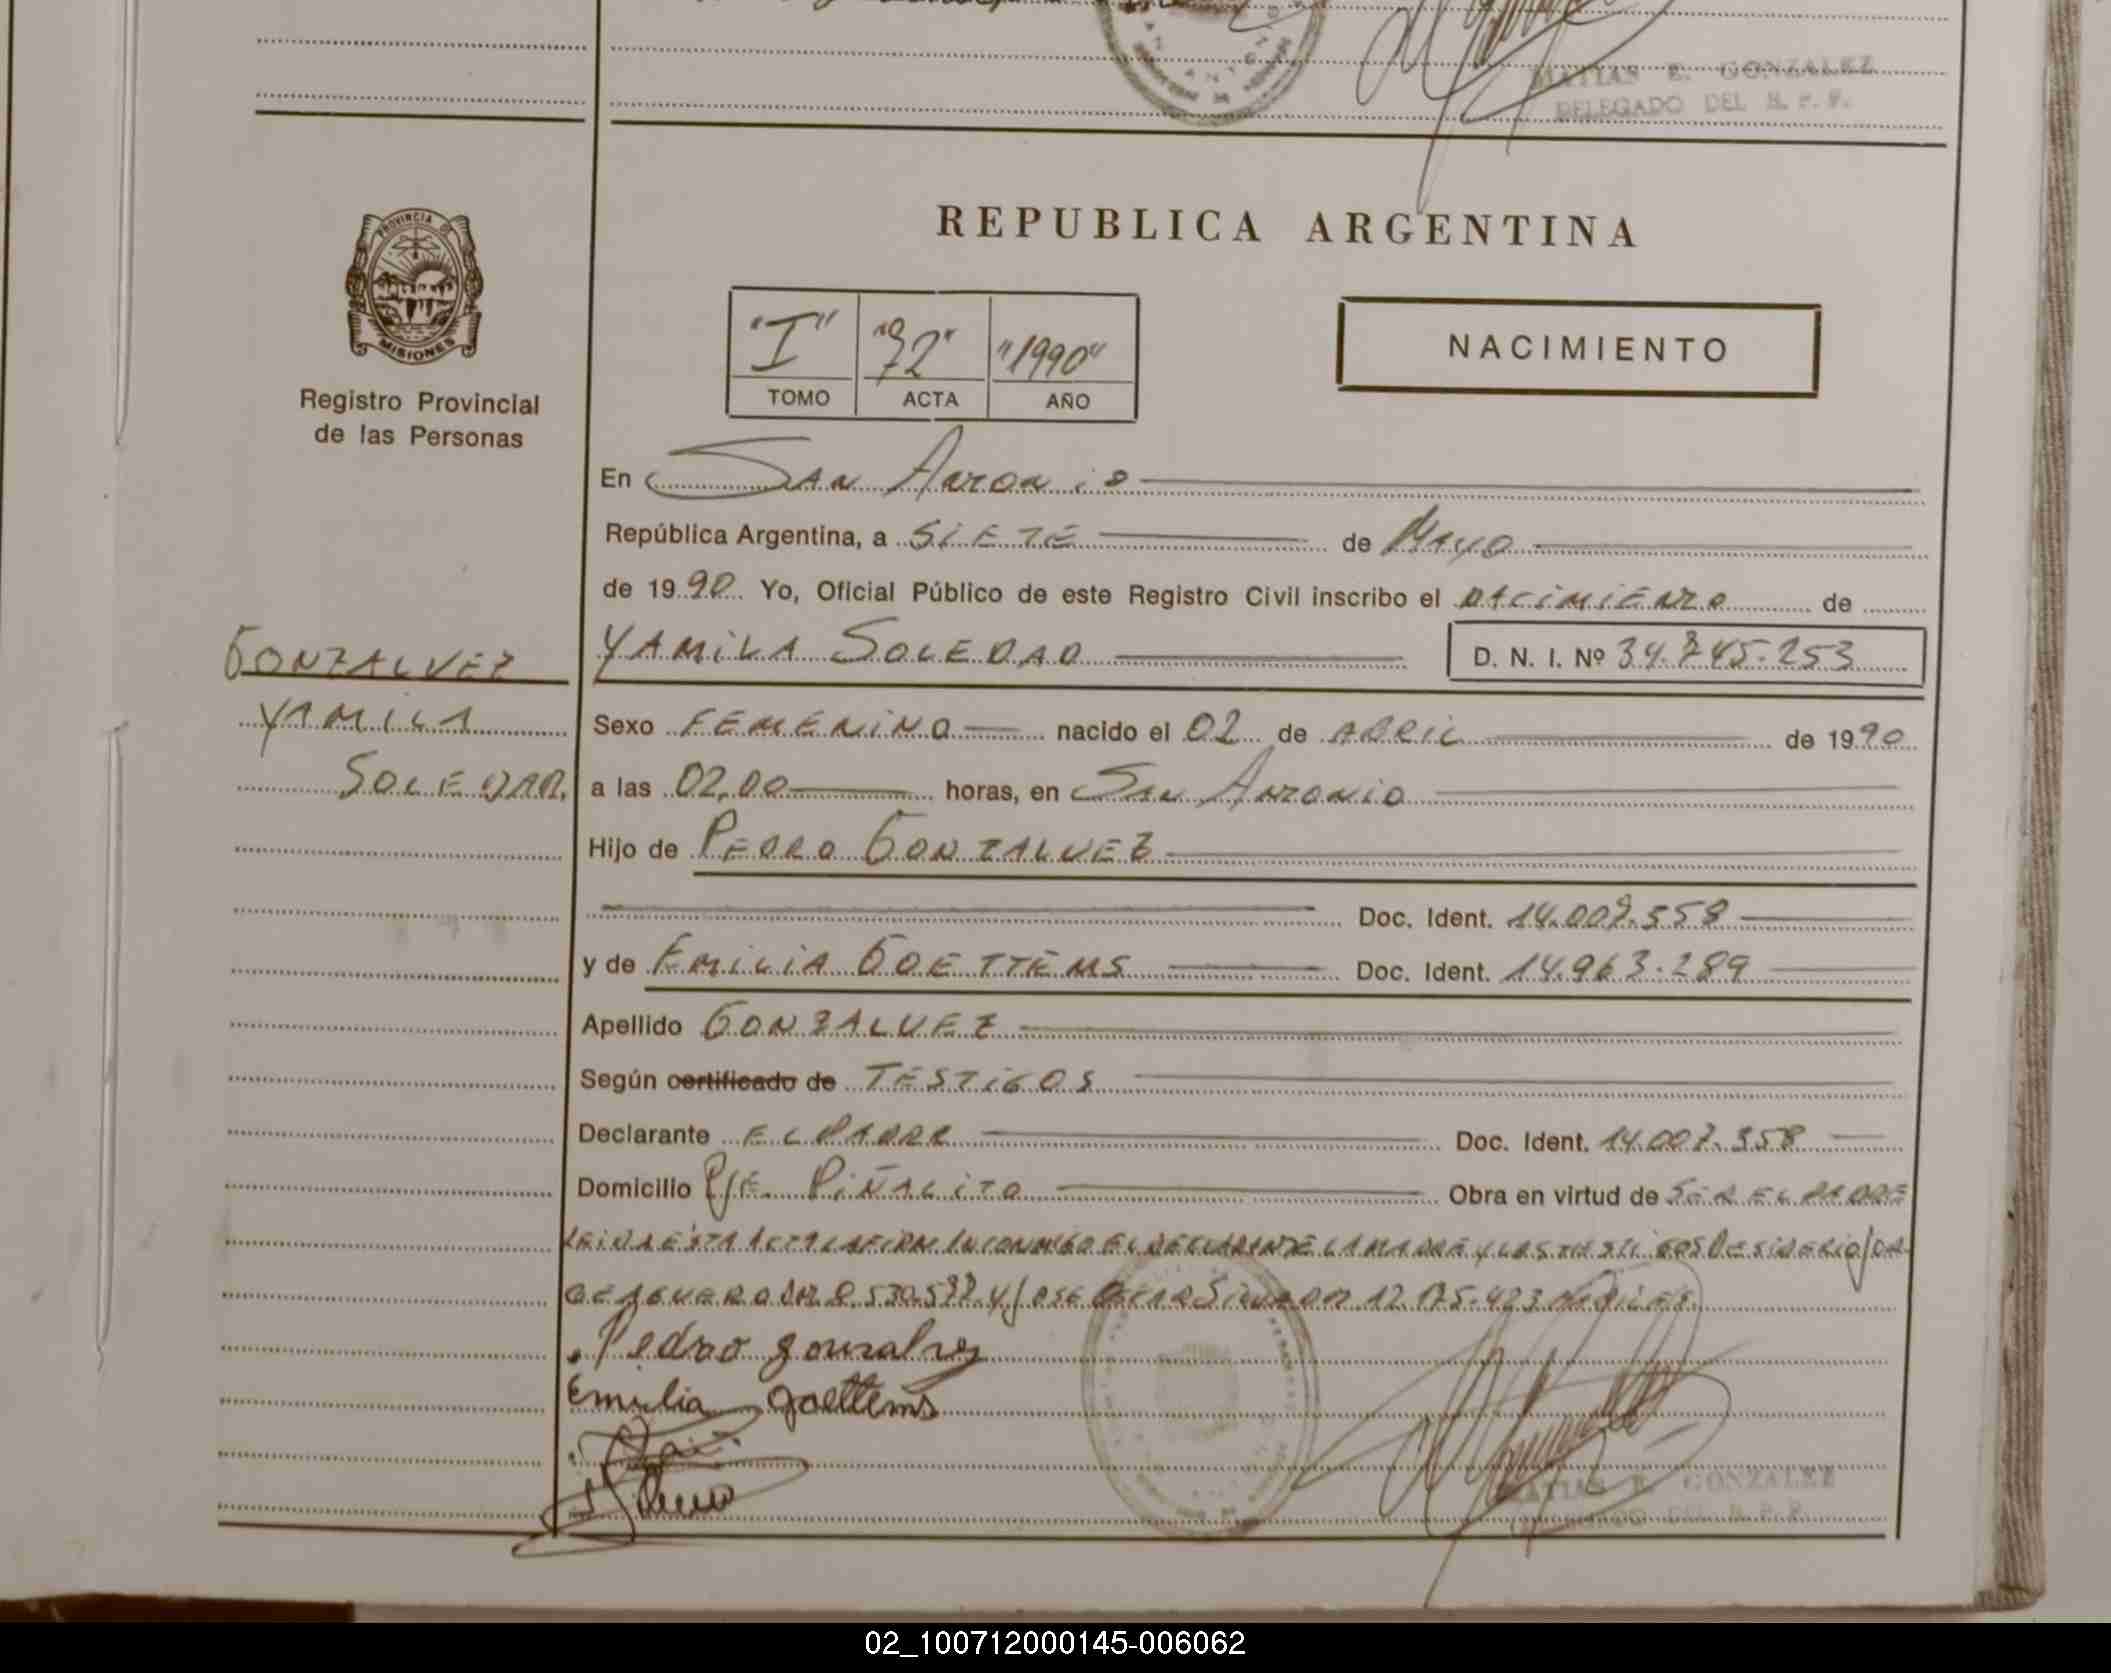 MATIAS E. GONZALEZ
DELEGADO DEL R. P. P.
PROVINCIA DE
MISIONES
Registro Provincial
de las Personas
REPUBLICA ARGENTINA
"I" "72" "1990"
TOMO ACTA AÑO
NACIMIENTO
En SAN ANTONIO
República Argentina, a SIETE de MAYO
de 1990. Yo, Oficial Público de este Registro Civil inscribo el NACIMIENTO de
GONZALVEZ
YAMILA
SOLEDAD.
YAMILA SOLEDAD D. N. I. Nº 34.745.253
Sexo FEMENINO nacido el 02 de ABRIL de 1990
a las 02,00 horas, en SAN ANTONIO
Hijo de PEDRO GONZALVEZ
Doc. Ident. 14.007.558
y de EMILIA GOETTEMS Doc. Ident. 14.963.289
Apellido GONZALVEZ
Según certificado de TESTIGOS
Declarante EL PADRE Doc. Ident. 14.007.558
Domicilio PJE. PIÑALITO Obra en virtud de SER EL PADRE
LEIDA ESTA ACTA LA FIRMAN CONMIGO EL DECLARANTE LA MADRE Y LOS TESTIGOS DESIDERIO
Y JOSE 12.175.423
Pedro gonzalvez
Emilia goettems
MATIAS E. GONZALEZ
DELEGADO DEL R. P. P.
02_100712000145-006062